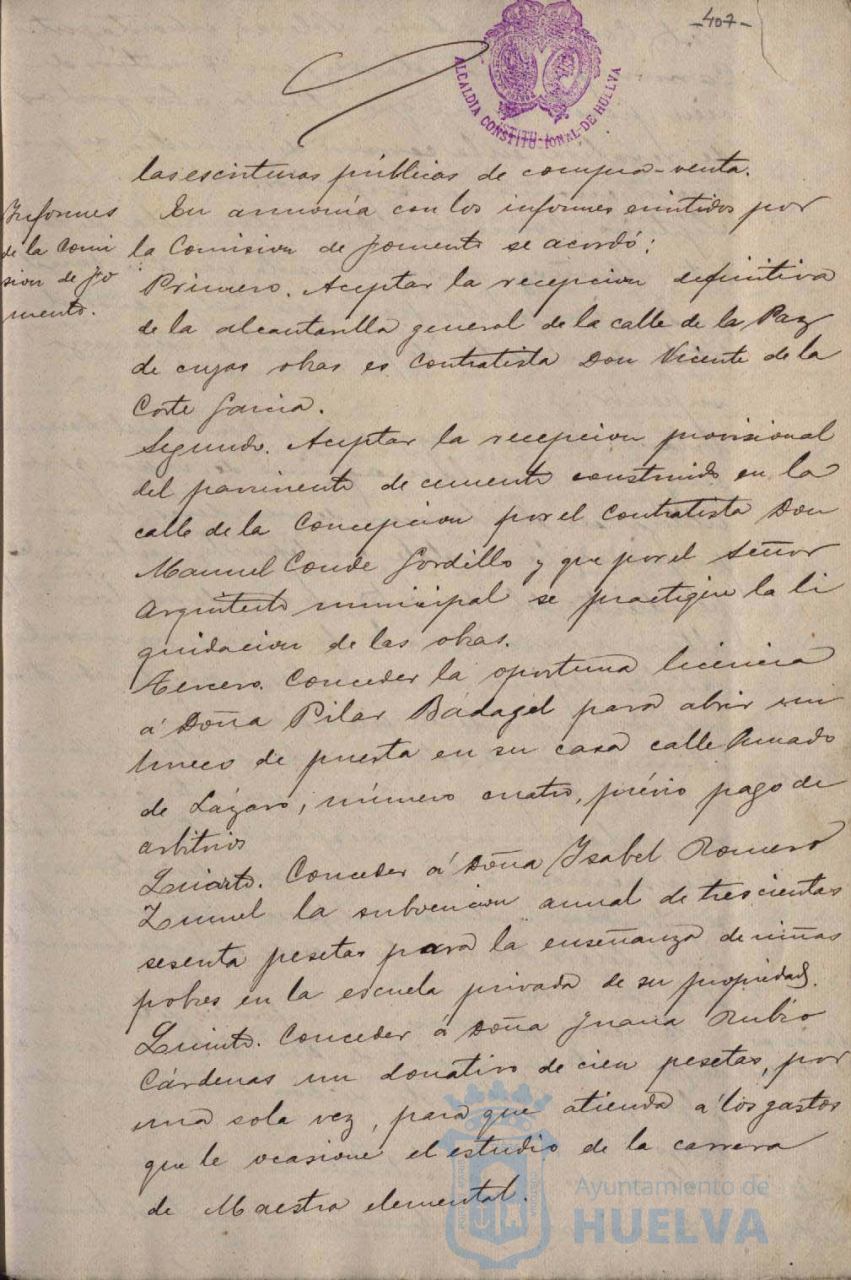 -407-
ALCALDIA CONSTITUCIONAL DE HUELVA
las escrituras públicas de compra-venta.
Informes
de la Comi
sion de Fo
mento.
En armonía con los informes emitidos por
la Comision de Fomento se acordó:
Primero. Aceptar la recepcion definitiva
de la alcantarilla general de la calle de la Paz
de cuyas obras es contratista Don Vicente de la
Corte Garcia.
Segundo. Aceptar la recepcion provisional
del pavimento de cemento construido en la
calle de la Concepcion por el contratista Don
Manuel Conde Gordillo y que por el Señor
Arquitecto municipal se practique la li
quidacion de las obras.
Tercero. Conceder la oportuna licencia
á Doña Pilar Bádagel para abrir un
hueco de puerta en su casa calle Amado
de Lázaro, número cuatro, prévio pago de
arbitrios
Cuarto. Conceder á Doña Ysabel Romero
la subvencion anual de trescientas
sesenta pesetas para la enseñanza de niñas
pobres en la escuela privada de su propiedad.
Quinto. Conceder á Doña Juana Rubio
Cárdenas un donativo de cien pesetas, por
una sola vez, para que atienda á los gastos
que le ocasione el estudio de la carrera
de Maestra elemental.
Ayuntamiento de
HUELVA